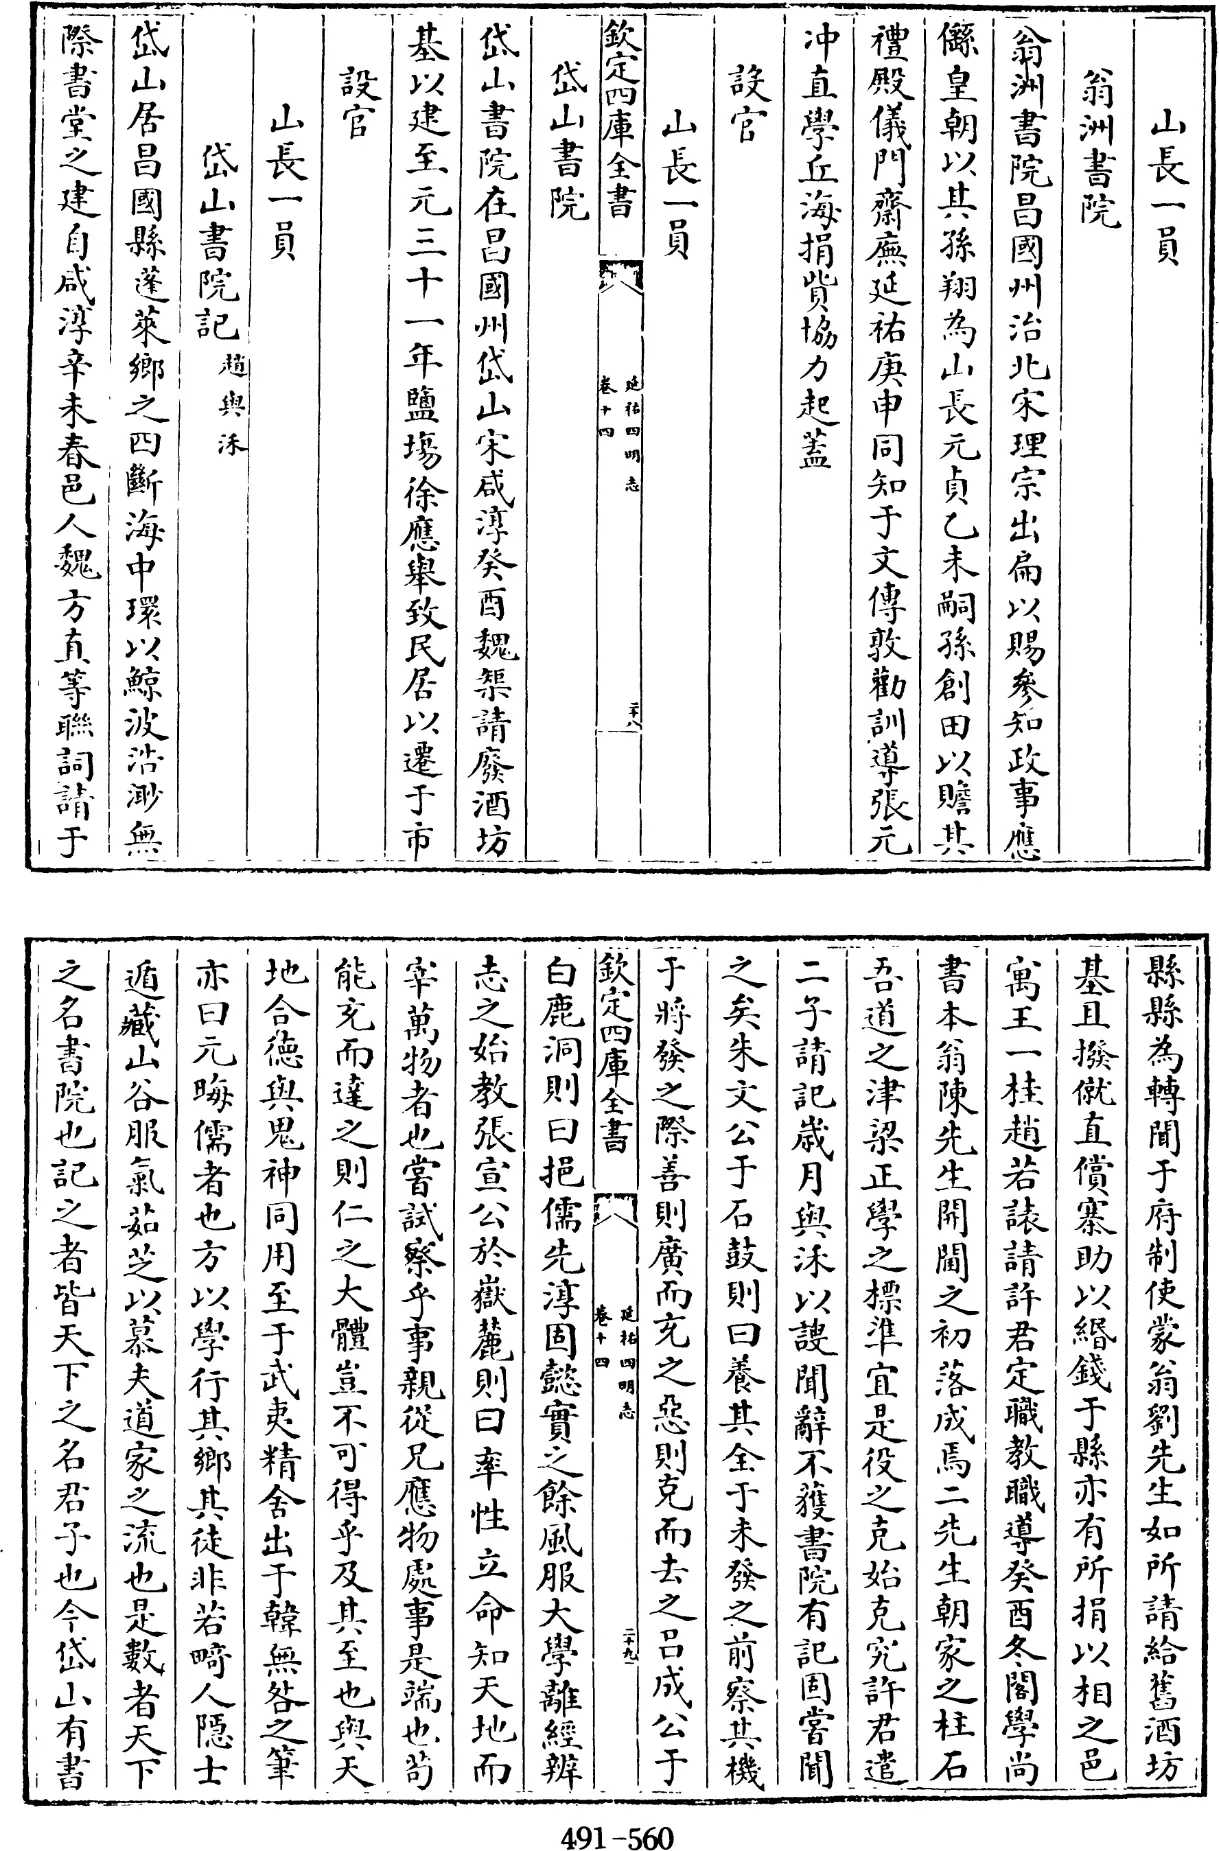 山長一員
翁洲書院
翁洲書院昌國州治北宋理宗出扁以賜參知政事應
𠏉皇朝以其孫翔為山長元貞乙未嗣孫創田以贍其
禮殿儀門齋廡延祐庚申同知于文傳敦勸訓導張元
冲直學丘海捐貲協力起蓋
設官
山長一員
欽定四庫全書
延祐四明志
卷十四
二十八
岱山書院
岱山書院在昌國州岱山宋咸淳癸酉魏榘請廢酒坊
基以建至元三十一年鹽場徐應舉致民居以遷于市
設官
山長一員
岱山書院記 趙與沬
岱山居昌國縣蓬萊鄉之四斷海中環以鯨波浩渺無
際書堂之建自咸淳辛未春邑人魏方直等聯詞請于
縣縣為轉聞于府制使蒙翁劉先生如所請給舊酒坊
基且撥僦直償寨助以緡錢于縣亦有所捐以相之邑
寓王一桂趙若誺請許君定職教職導癸酉冬閣學尚
書本翁陳先生開閫之初落成焉二先生朝家之柱石
吾道之津梁正學之標準宜是役之克始克究許君遣
二子請記歲月與沬以謏聞辭不獲書院有記固嘗聞
之矣朱文公于石鼓則曰養其全于未發之前察其機
于將發之際善則廣而充之惡則克而去之吕成公于
欽定四庫全書
延祐四明志
卷十四
二十九
白鹿洞則曰挹儒先淳固懿實之餘風服大學離經辨
志之始教張宣公於嶽麓則曰率性立命知天地而
宰萬物者也嘗試察乎事親從兄應物處事是端也苟
能充而達之則仁之大體豈不可得乎及其至也與天
地合德與鬼神同用至于武夷精舍出于韓無咎之筆
亦曰元晦儒者也方以學行其鄉其徒非若畸人隱士
遁藏山谷服氣茹芝以慕夫道家之流也是數者天下
之名書院也記之者皆天下之名君子也今岱山有書
491-560